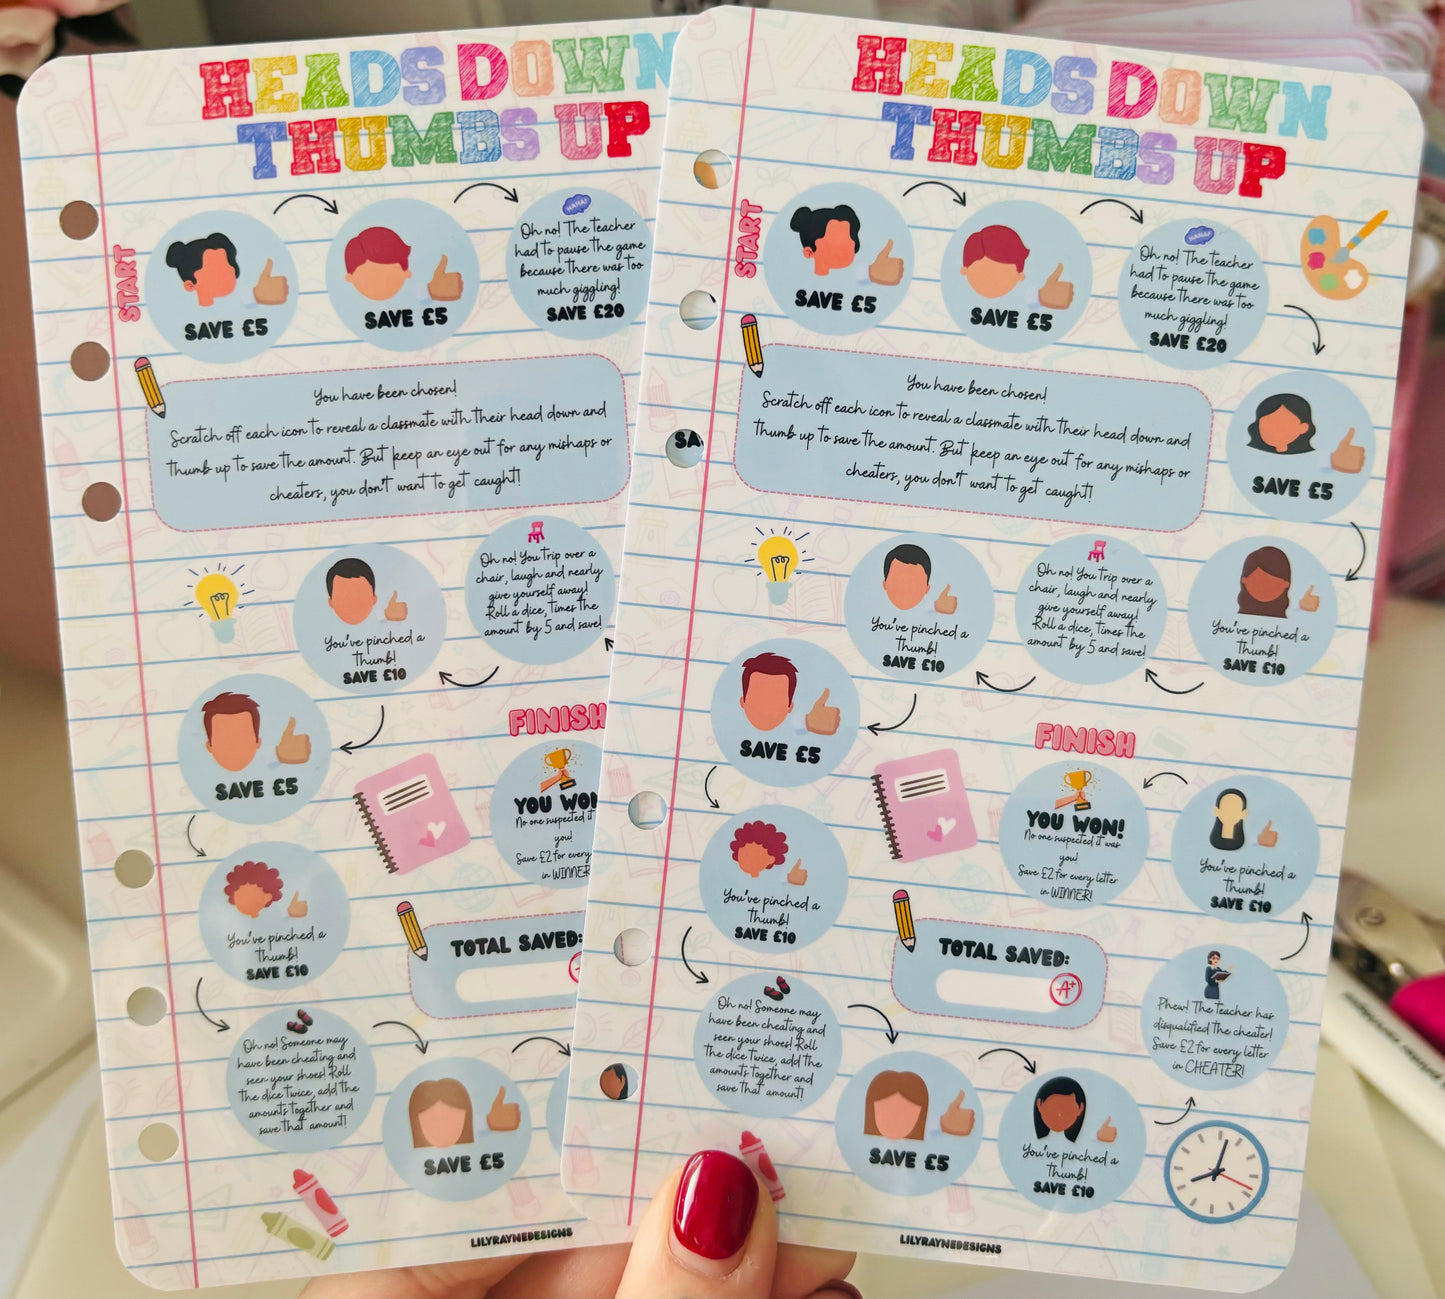 HEADS DOWN
THUMBS UP
START
SAVE £5
SAVE £5
HAHA!
Oh no! The teacher
had to pause the game
because there was too
much giggling!
SAVE £20
You have been chosen!
Scratch off each icon to reveal a classmate with their head down and
thumb up to save the amount. But keep an eye out for any mishaps or
cheaters, you don't want to get caught!
You've pinched a
thumb!
SAVE £10
Oh no! You trip over a
chair, laugh and nearly
give yourself away!
Roll a dice, times the
amount by 5 and save!
SAVE £5
FINISH
YOU WON
No one suspected it
you!
Save £2 for every
in WINNER
You've pinched a
thumb!
SAVE £10
TOTAL SAVED:
Oh no! Someone may
have been cheating and
seen your shoes! Roll
the dice twice, add the
amounts together and
save that amount!
SAVE £5
LILYRAYNEDESIGNS
HEADS DOWN
THUMBS UP
START
SAVE £5
SAVE £5
HAHA!
Oh no! The teacher
had to pause the game
because there was too
much giggling!
SAVE £20
SA
You have been chosen!
Scratch off each icon to reveal a classmate with their head down and
thumb up to save the amount. But keep an eye out for any mishaps or
cheaters, you don't want to get caught!
SAVE £5
You've pinched a
thumb!
SAVE £10
Oh no! You trip over a
chair, laugh and nearly
give yourself away!
Roll a dice, times the
amount by 5 and save!
You've pinched a
thumb!
SAVE £10
SAVE £5
FINISH
YOU WON!
No one suspected it was
you!
Save £2 for every letter
in WINNER!
You've pinched a
thumb!
SAVE £10
You've pinched a
thumb!
SAVE £10
TOTAL SAVED:
A+
Phew! The teacher has
disqualified the cheater!
Save £2 for every letter
in CHEATER!
Oh no! Someone may
have been cheating and
seen your shoes! Roll
the dice twice, add the
amounts together and
save that amount!
SAVE £5
You've pinched a
thumb!
SAVE £10
LILYRAYNEDESIGNS